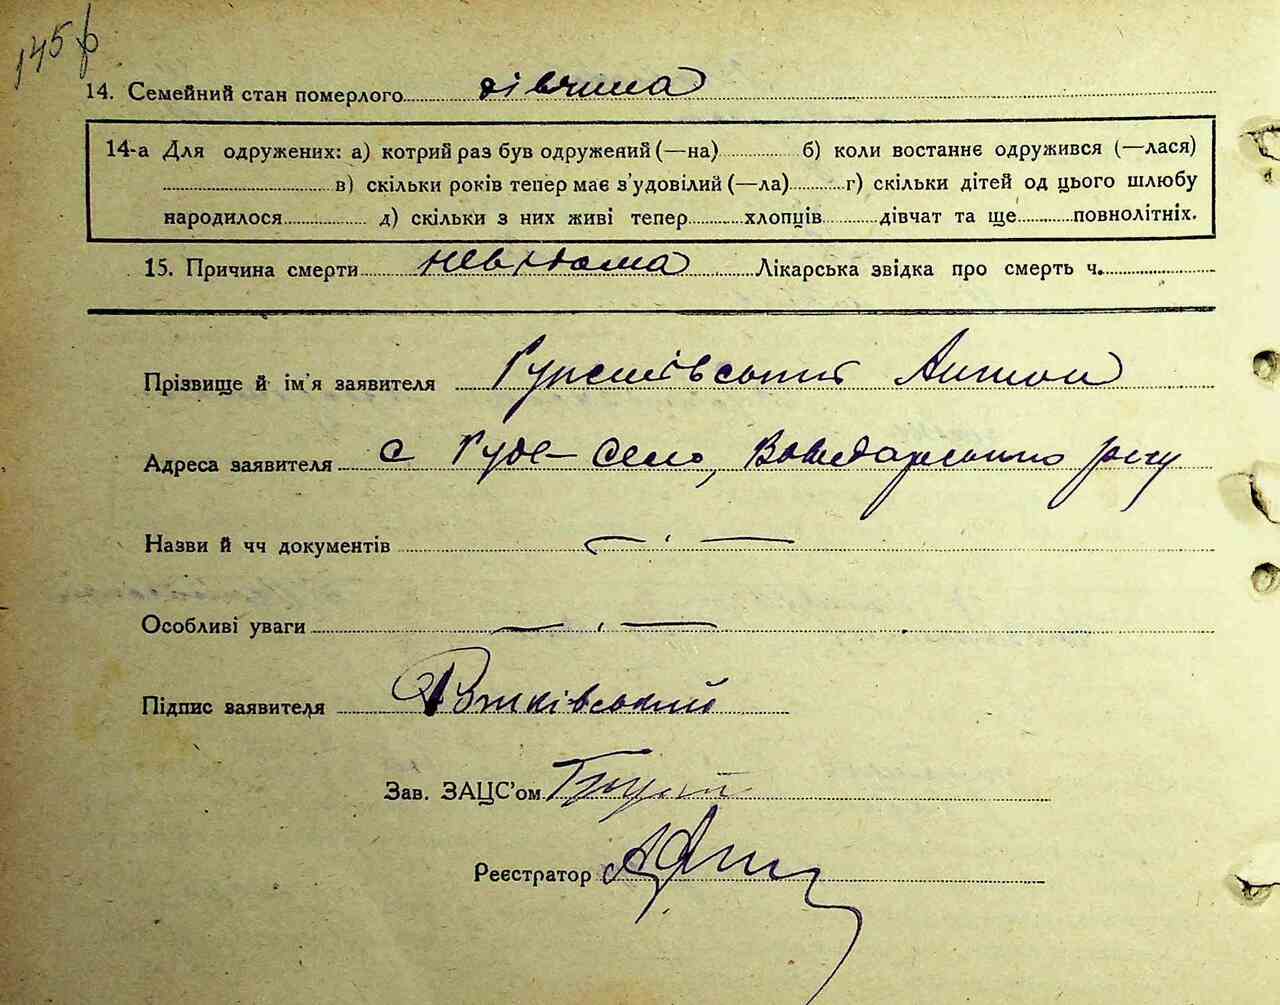 14. Семейний стан померлого дівчина
14-а Для одружених: а) котрий раз був одружений (—на) б) коли востаннє одружився (—лася)
в) скільки років тепер має з'удовілий (—ла) г) скільки дітей од цього шлюбу
народилося д) скільки з них живі тепер хлопців дівчат та ще повнолітніх.
15. Причина смерти невідома Лікарська звідка про смерть ч.
Прізвище й ім'я заявителя Антон
Адреса заявителя с Руде-Село, Володарського р-ну
Назви й чч документів — . —
Особливі уваги — . —
Підпис заявителя
Зав. ЗАЦС'ом
Реєстратор